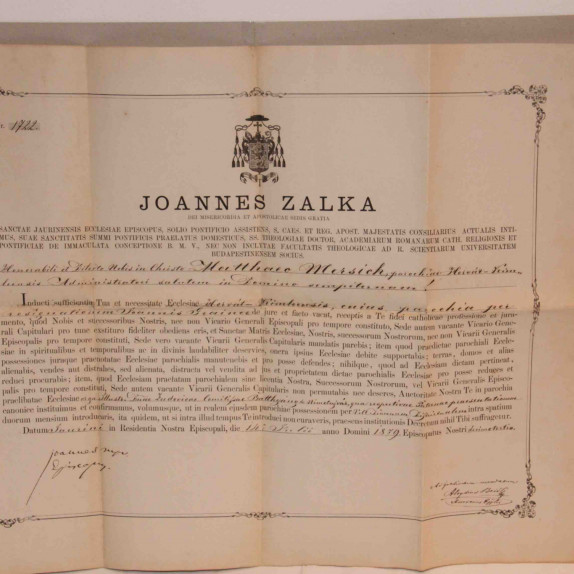 1722
JOANNES ZALKA
DEI MISERICORDIA ET APOSTOLICAE SEDIS GRATIA
SANCTAE JAURINENSIS ECCLESIAE EPISCOPUS, SOLIO PONTIFICIO ASSISTENS, S. CAES. ET REG. APOST. MAJESTATIS CONSILIARIUS ACTUALIS INTI-
MUS, SUAE SANCTITATIS SUMMI PONTIFICIS PRAELATUS DOMESTICUS, SS. THEOLOGIAE DOCTOR, ACADEMIARUM ROMANARUM CATH. RELIGIONIS ET
PONTIFICIAE DE IMMACULATA CONCEPTIONE B. M. V., NEC NON INCLITAE FACULTATIS THEOLOGICAE AD R. SCIENTIARUM UNIVERSITATEM
BUDAPESTINENSEM SOCIUS.
Honorabili et Dilecto Nobis in Christo Matthaeo Mersich, parochiae Horvát-
Administratori salutem in Domino sempiternam!
Inducti sufficientia Tua et necessitate Ecclesiae Horvát cuius parochia per
resignationem Joannis de jure et facto vacat, receptis a Te fidei catholicae professione ac jura-
mento, quod Nobis et successoribus Nostris, nec non Vicario Generali Episcopali pro tempore constituto, Sede autem vacante Vicario Gene-
rali Capitulari pro tunc existituro fideliter obediens eris, et Sanctae Matris Ecclesiae, Nostris, successorum Nostrorum, nec non Vicarii Generalis
Episcopalis pro tempore constituti, Sede vero vacante Vicarii Generalis Capitularis mandatis parebis; item quod praedictae parochiali Eccle-
siae in spiritualibus et temporalibus ac in divinis laudabiliter deservies, onera ipsius Ecclesiae debite supportabis; terras, domos et alias
possessiones juraque praenotatae Ecclesiae parochialis manutenebis et pro posse defendes; nihilque, quod ad Ecclesiam dictam pertinent,
alienabis, vendes aut distrahes, sed alienata, distracta vel vendita ad jus et proprietatem dictae parochialis Ecclesiae pro posse reduges et
reduci procurabis; item, quod Ecclesiam praetactam parochialem sine licentia Nostra, Successorum Nostrorum, vel Vicarii Generalis Episco-
palis pro tempore constituti, Sede autem vacante Vicarii Generalis Capitularis non permutabis nec deseres, Auctoritate Nostra Te in parochum
praelibatae Ecclesiae
canonice instituimus et confirmamus, volumusque, ut in realem ejusdem parochiae possessionem per intra spatium
duorum mensium introducaris, ita quidem, ut si intra illud tempus Te introduci non curaveris, praesens institutionis Decretum nihil Tibi suffragetur.
Datum Jaurini in Residentia Nostra Episcopali, die 14 anno Domini 1879 Episcopatus Nostri
Joannes
Episcopus